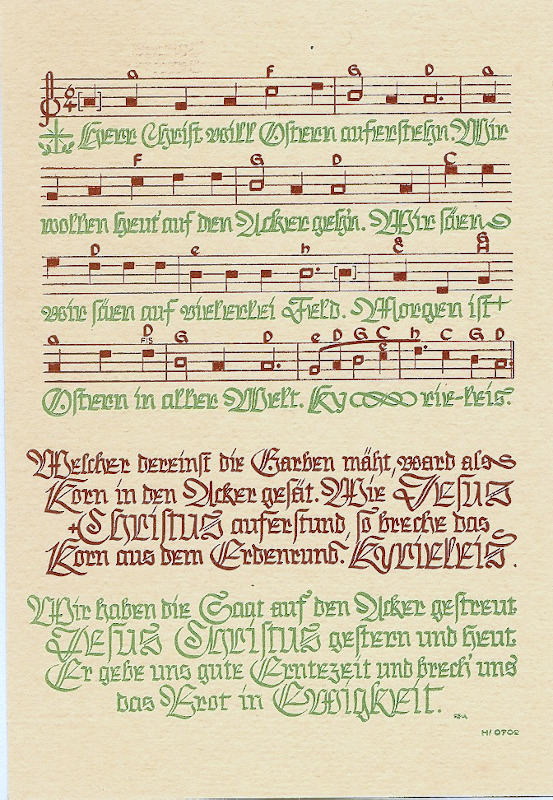 a F G D a
Herr Christ will Ostern auferstehn. Wir
F G D C
wollen heut auf den Acker gehn. Wir säen
D e h a G A
wir säen auf vielerlei Feld. Morgen ist
a D FIS G D e D G C e h C G D
Ostern in aller Welt. Ky rie-leis.
Welcher dereinst die Garben mäht, ward als
Korn in den Acker gesät. Wie JESUS
CHRISTUS auferstund, so breche das
Korn aus dem Erdenrund. KYRIELEIS.
Wir haben die Saat auf den Acker gestreut
JESUS CHRISTUS gestern und heut
Er gebe uns gute Erntezeit und brech' uns
das Brot in EWIGKEIT.
HJ 0702